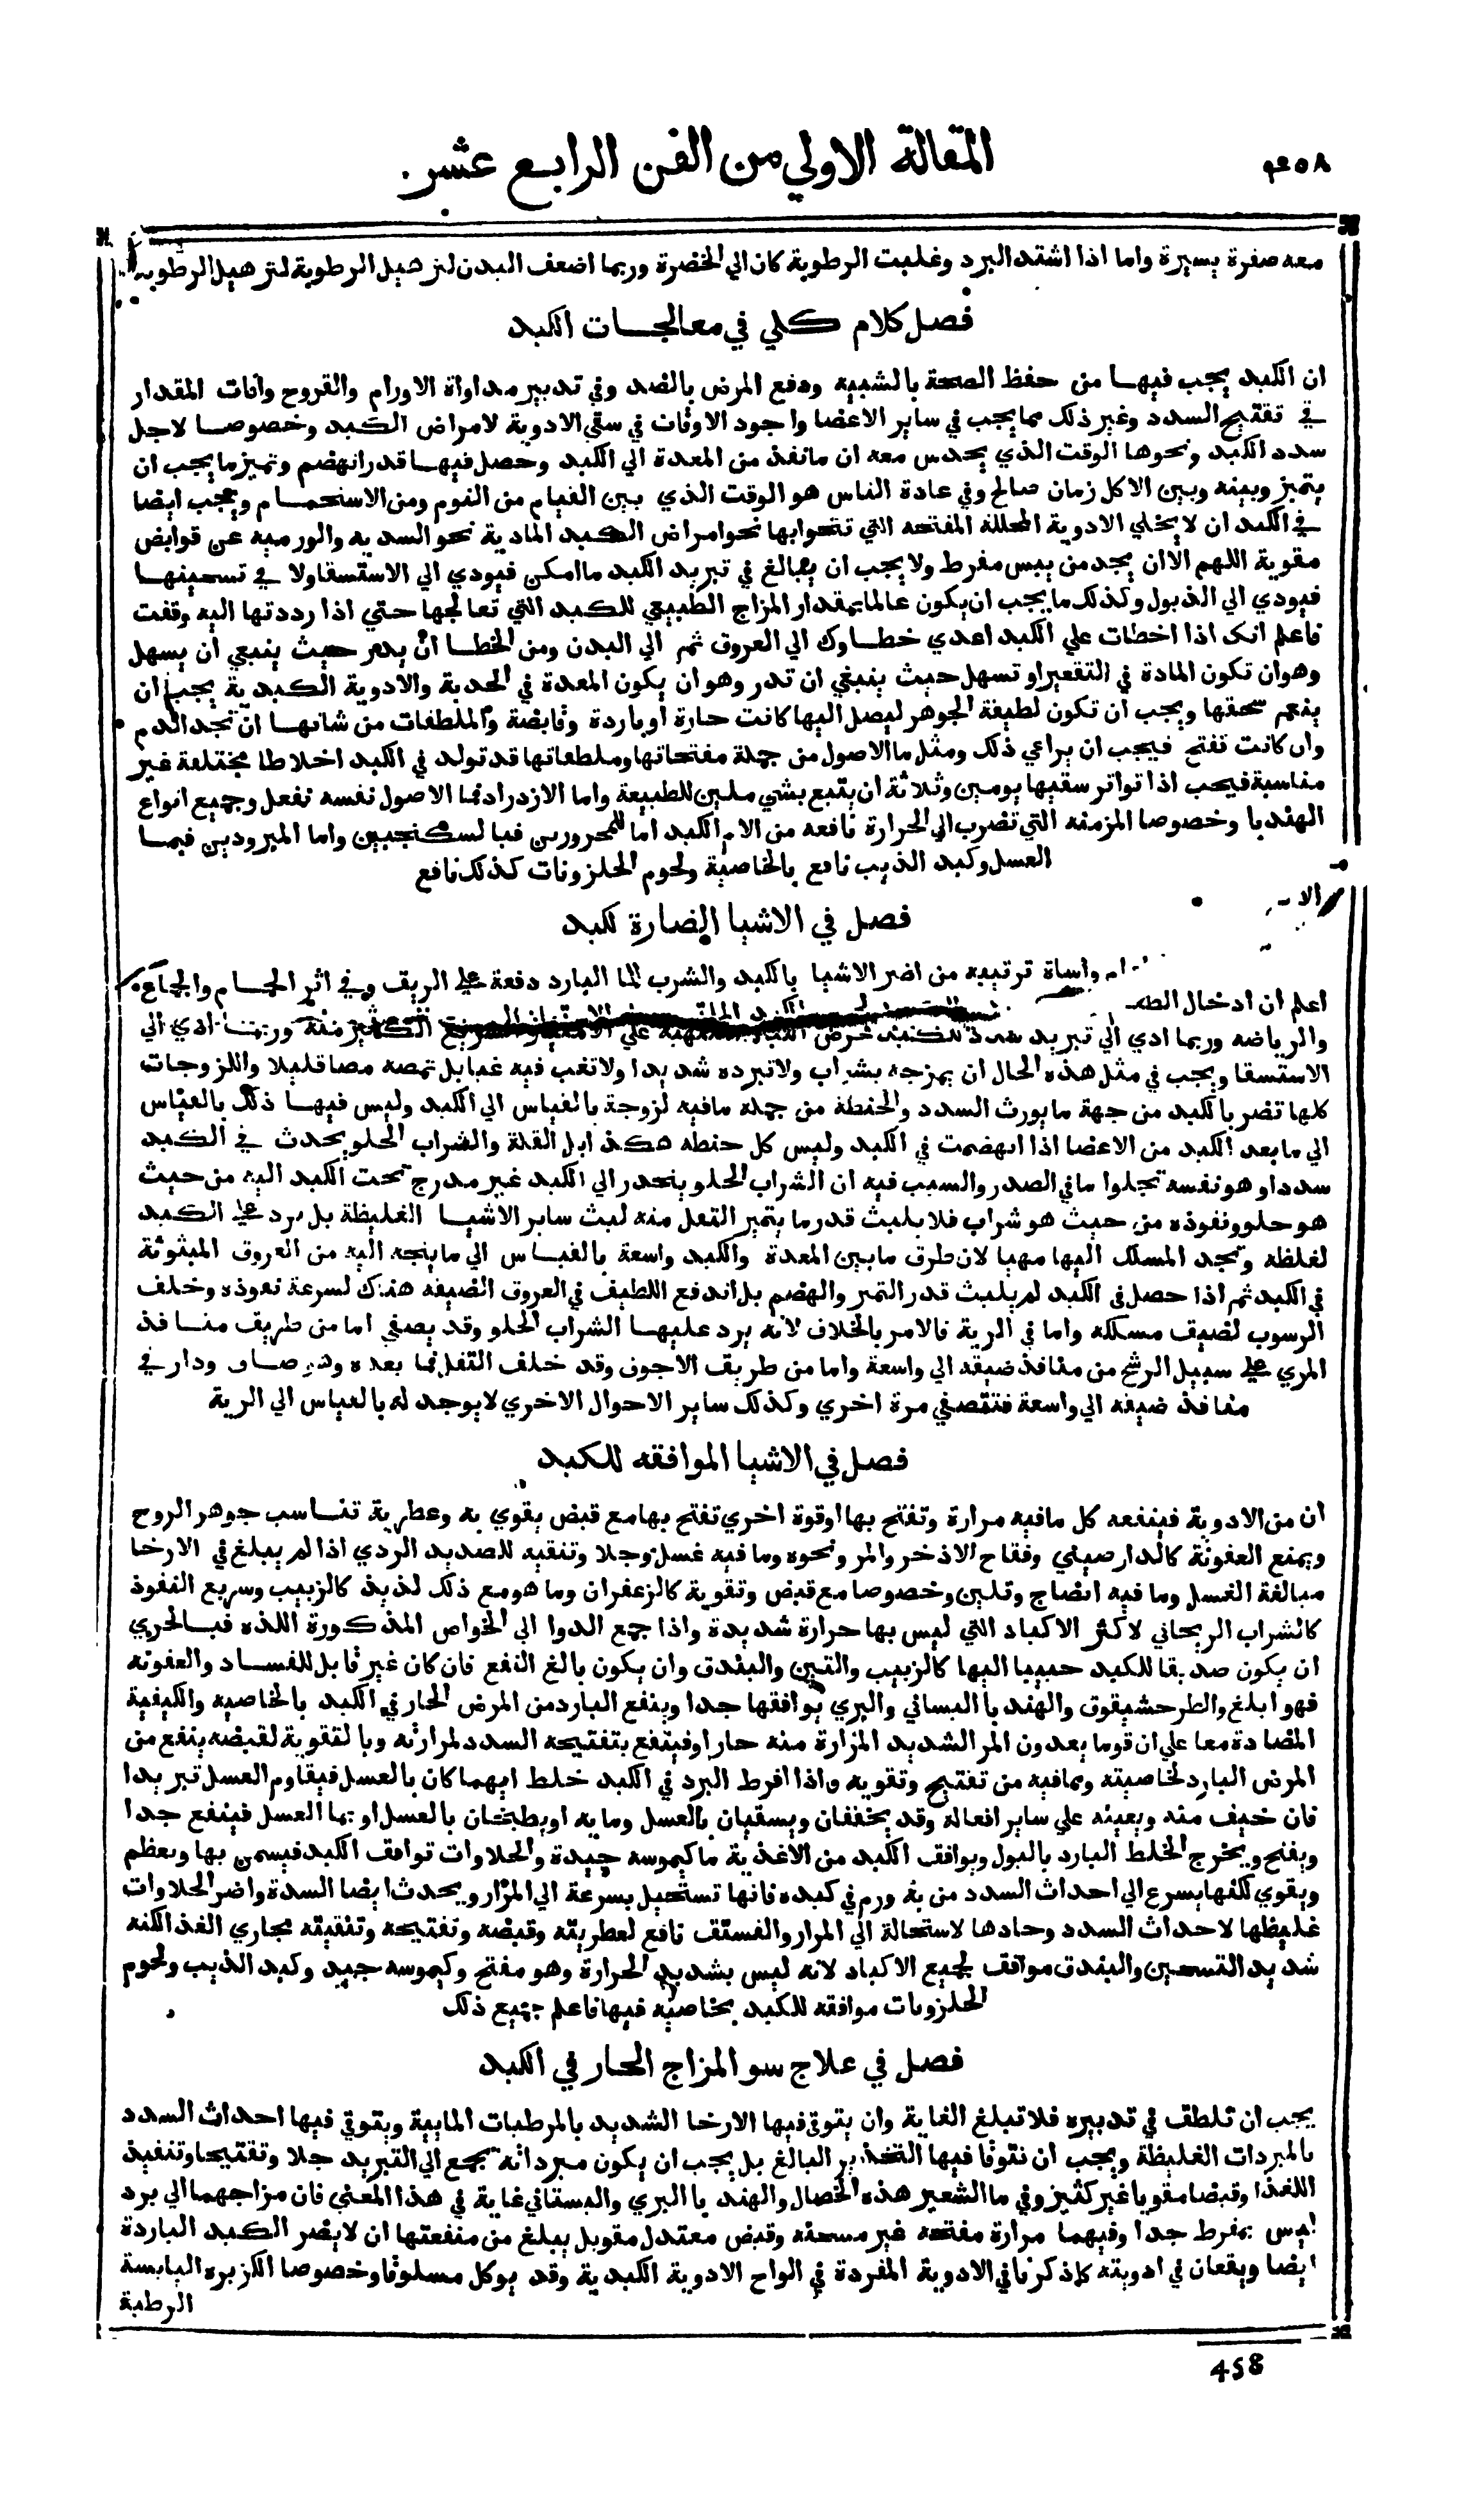 ٤٥٨
المقالة الاولي من الفن الرابع عشر
معه صفرة يسيرة واما اذا اشتد البرد وغلبت الرطوبة كان الي الخضرة وربما اضعف البدن لترهيل الرطوبة لترهيل الرطوبه
فصل كلام كلي في معالجات الكبد
ان الكبد يجب فيها من حفظ الصحة بالشبيه ودفع المرض بالضد وفي تدبير مداواة الاورام والقروح وآفات المقدار
في تفتيح السدد وغير ذلك مما يجب في ساير الاعضا واجود الاوقات في سقي الادوية لامراض الكبد وخصوصا لاجل
سدد الكبد ونحوها الوقت الذي يحدس معه ان ما نفذ من المعدة الي الكبد وحصل فيها قد انهضم وتميز ما يجب ان
يتميز وبينه وبين الاكل زمان صالح وفي عادة الناس هو الوقت الذي بين القيام من النوم ومن الاستحمام ويجب ايضا
في الكبد ان لا يخلي الادوية المحللة المفتحه التي تنحوا بها نحو امراض الكبد المادية نحو السديه والورميه عن قوابض
مقوية اللهم الا ان يجد من يبس مفرط ولا يجب ان يبالغ في تبريد الكبد ما امكن فيودي الي الاستسقا ولا في تسخينها
فيودي الي الذبول وكذلك ما يجب ان يكون عالما بمقدار المزاج الطبيعي للكبد التي تعالجها حتي اذا رددتها اليه وقفت
فاعلم انك اذا اخطات علي الكبد اعدي خطاوك الي العروق ثم الي البدن ومن الخطا ان يدر حيث ينبغي ان يسهل
وهو ان تكون المادة في التقعير او تسهل حيث ينبغي ان تدر وهو ان يكون المعدة في الحدبة والادوية الكبدية يجب ان
ينعم سحقها ويجب ان تكون لطيفة الجوهر ليصل اليها كانت حارة او باردة وقابضة والملطفات من شانها ان تحد الدم
وان كانت تفتح فيجب ان يراعي ذلك ومثل ما الاصول من جملة مفتحاتها وملطفاتها قد تولد في الكبد اخلاطا مختلفة غير
مناسبة فيجب اذا تواتر سقيها يومين وثلاثة ان يتبع بشي ملين للطبيعة واما الازدراد فما الاصول نفسه تفعل وجميع انواع
الهندبا وخصوصا المزمنه التي تضرب الي الحرارة نافعه من الام الكبد اما للمحرورين فبالسكنجبين واما المبرودين فبما
العسل وكبد الذيب نافع بالخاصية ولحوم الحلزونات كذلك نافع
فصل في الاشيا الضارة لكبد
اعلم ان ادخال الطعـ واساة ترتيبه من اضر الاشيا بالكبد والشرب للما البارد دفعة علي الريق وفي اثر الحمام والجماع
والرياضه وربما ادي الي تبريد شديد للكبد لحرص الكبد الملتهبة علي الامتيار السريع الكثير منه وربما ادي الي
الاستسقا ويجب في مثل هذه الحال ان يمزجه بشراب ولا تبرده شديدا ولا تغب فيه غبا بل تمصه مصا قليلا واللزوجات
كلها تضر بالكبد من جهة ما يورث السدد والحنطة من جمله ما فيه لزوجة بالقياس الي الكبد وليس فيها ذلك بالقياس
الي ما بعد الكبد من الاعضا اذا انهضمت في الكبد وليس كل حنطه هكذا بل القلة والشراب الحلو يحدث في الكبد
سددا وهو نفسه تجلوا ما في الصدر والسبب فيه ان الشراب الحلو ينحدر الي الكبد غير مدرج تحت الكبد اليه من حيث
هو حلو ونفوذه من حيث هو شراب فلا يلبث قدر ما يتميز الثفل منه لبث ساير الاشيا الغليظة بل يرد علي الكبد
لغلظه وتجد المسلك اليها مهيا لان طرق ما بين المعدة والكبد واسعة بالقياس الي ما يتجه اليه من العروق المبثوثة
في الكبد ثم اذا حصل في الكبد لم يلبث قدر التميز والهضم بل اندفع اللطيف في العروق الضيقه هناك لسرعة نفوذه وخلف
الرسوب لضيق مسلكه واما في الرية فالامر بالخلاف لانه يرد عليها الشراب الحلو وقد يصفي اما من طريق منافذ
المري علي سبيل الرشح من منافذ ضيقه الي واسعة واما من طريق الاجوف وقد خلف الثفل فما بعده وهو صاف ودار في
منافذ ضيقه الي واسعة فتتصفي مرة اخري وكذلك ساير الاحوال الاخري لا يوجد له بالقياس الي الرية
فصل في الاشيا الموافقه للكبد
ان من الادوية فينفعه كل ما فيه مرارة وتفتح بها او قوة اخري تفتح بها مع قبض يقوي به وعطرية تناسب جوهر الروح
ويمنع العفونة كالدارصيني وفقاح الاذخر والمر ونحوه وما فيه غسل وجلا وتنقيه للصديد الردي اذا لم يبلغ في الارخا
مبالغة الغسل وما فيه انضاج وتلين وخصوصا مع قبض وتقوية كالزعفران وما هو مع ذلك لذيذ كالزبيب وسريع النفوذ
كالشراب الريحاني لاكثر الاكباد التي ليس بها حرارة شديدة واذا جمع الدوا الي الخواص المذكورة اللذه فبالحري
ان يكون صديقا للكبد حبيبا اليها كالزبيب والتين والبندق وان يكون بالغ النفع فان كان غير قابل للفساد والعفونه
فهو ابلغ والطرحشيقوق والهندبا البساني والبري يوافقها جدا وينفع البارد من المرض الحار في الكبد بالخاصيه والكيفية
المضادة معا علي ان قوما يعدون المر الشديد المرارة منه حارا وفينفع بتفتيحه السدد لمرارته وبالتقوية لقبضه ينفع من
المرض البارد لخاصيته وبما فيه من تفتيح وتقويه واذا افرط البرد في الكبد خلط ايهما كان بالعسل فيقاوم العسل تبريدا
فان خيف منه ويعينه علي ساير افعاله وقد يخففان ويسقيان بالعسل ومايه او يطبخان بالعسل او بما العسل فينفع جدا
ويفتح ويخرج الخلط البارد بالبول ويوافق الكبد من الاغذية ما كيموسه جيدة والحلاوات توافق الكبد فيسمن بها ويعظم
ويقوي لكنها يسرع الي احداث السدد من به ورم في كبده فانها تستحيل بسرعة الي المرار ويحدث ايضا السدة واضر الحلاوات
غليظها لاحداث السدد وحادها لاستحالة الي المرار والفستق نافع لعطريته وقبضه وتفتيحه وتنقيته مجاري الغذا لكنه
شديد التسخين والبندق موافق لجميع الاكباد لانه ليس بشديد الحرارة وهو مفتح وكيموسه جيد وكبد الذيب ولحوم
الحلزونات موافقه للكبد بخاصيه فيها فاعلم جميع ذلك
فصل في علاج سو المزاج الحار في الكبد
يجب ان تلطف في تدبيره فلا تبلغ الغاية وان يتوقي فيها الارخا الشديد بالمرطبات المايية ويتوقي فيها احداث السدد
بالمبردات الغليظة ويجب ان نتوقا فيها التخدير البالغ بل يجب ان يكون مبرداته تجمع الي التبريد جلا وتفتيحا وتنفيذ
اللغذا وقبضا مقويا غير كثير وفي ما الشعير هذه الخصال والهندبا البري والبستاني غاية في هذا المعني فان مزاجهما الي برد
ليس بمفرط جدا وفيهما مرارة مفتحه غير مسخنه وقبض معتدل مقوبل يبلغ من منفعتها ان لا يضر الكبد الباردة
ايضا ويقعان في ادويته كما ذكرنا في الادوية المفردة في الواح الادوية الكبدية وقد يوكل مسلوقا وخصوصا الكزبره اليابسة
الرطبة
458